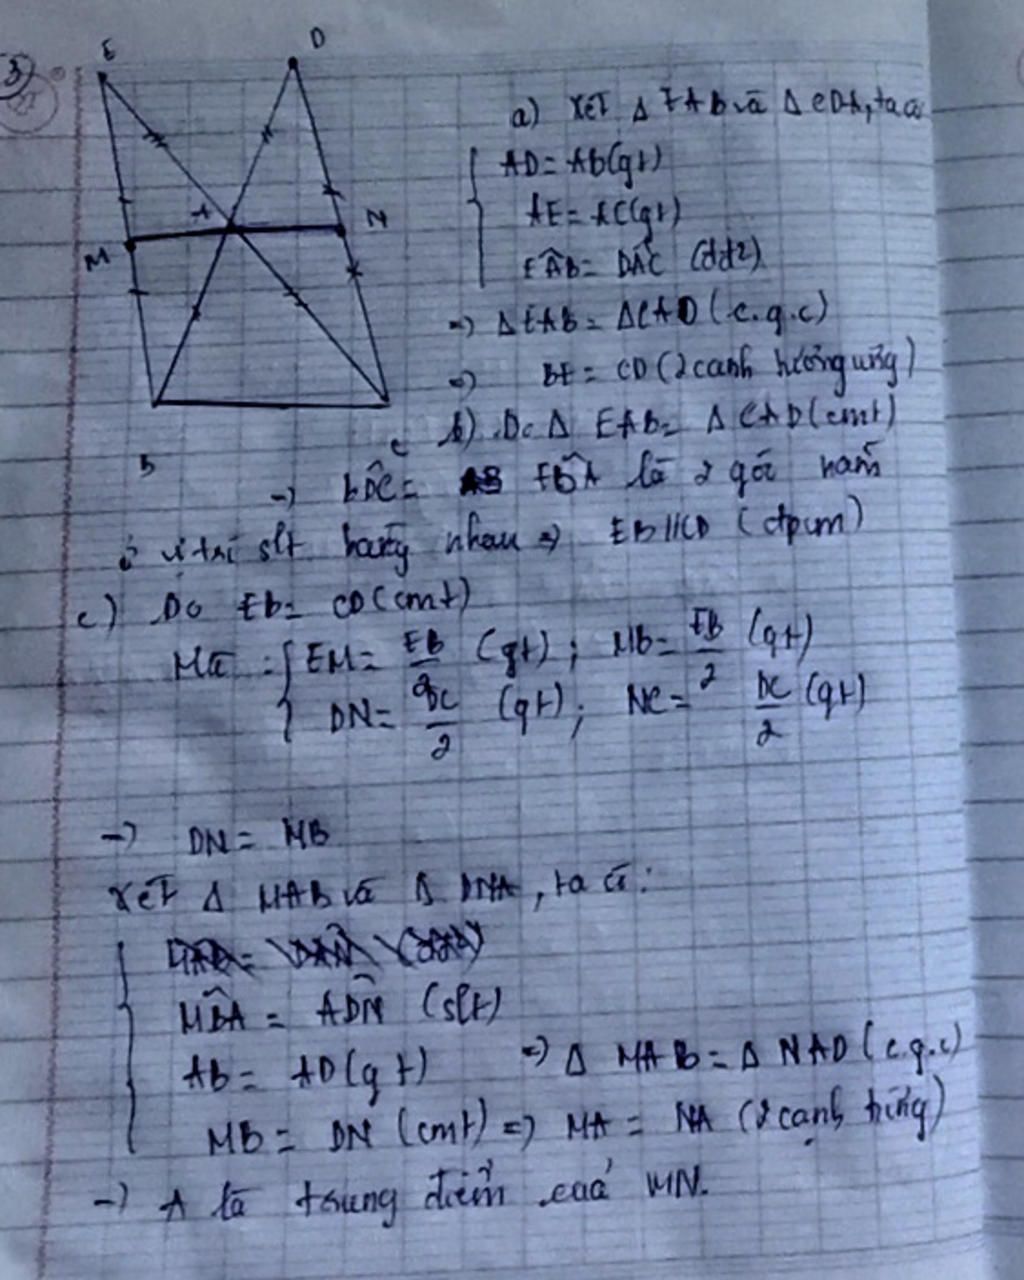 3)
E
D
A
N
M
B
C
a) Xét Δ EAB và Δ CDA, ta có
AD = AB (gt)
AE = AC (gt)
EÂB = DÂC (đđ2)
=> ΔEAB = ΔCAD (c.g.c)
=> BE = CD (2 cạnh tương ứng)
b) Do Δ EAB = Δ CAD (cmt)
-> BD̂C = EB̂A là 2 góc nằm
ở vị trí slt bằng nhau => EB//CD (đpcm)
c) Do EB = CD (cmt)
Mà : EM = EB/2 (gt) ; MB = EB/2 (gt)
DN = DC/2 (gt) ; NC = DC/2 (gt)
-> DN = MB
Xét Δ MAB và Δ DNA, ta có:
MB̂A = AD̂N (slt)
AB = AD (gt) => Δ MAB = Δ NAD (c.g.c)
MB = DN (cmt) => MA = NA (2 cạnh tứng)
-> A là trung điểm của MN.